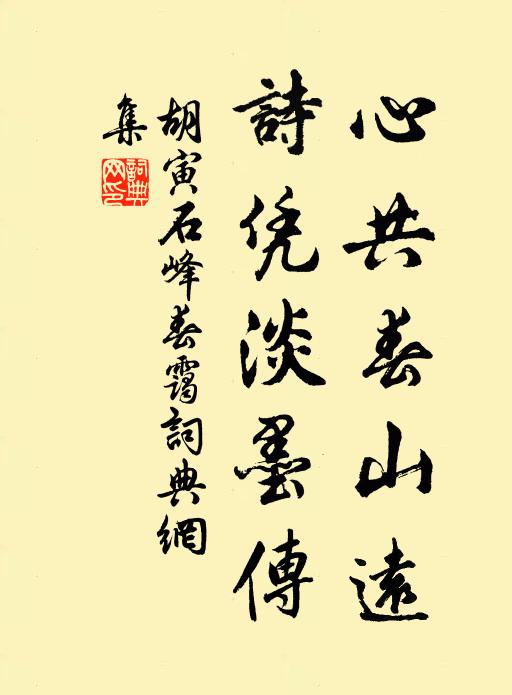 心共春山遠
詩凭淡墨傳
胡寅石峰春靄詞典網
集
詞典網印